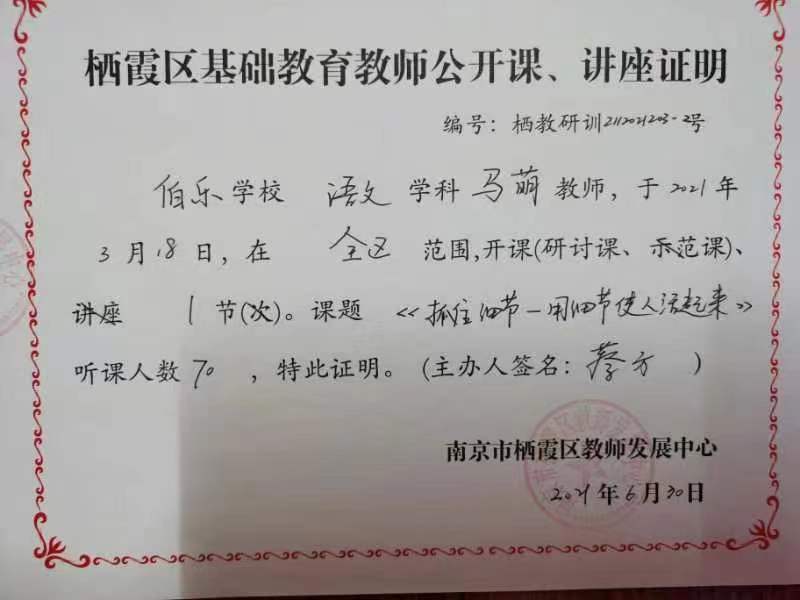 栖霞区基础教育教师公开课、讲座证明
编号：栖教研训2112021203-2号
伯乐学校 语文学科马萌教师，于2021年
3月18日，在 全区 范围,开课(研讨课、示范课)、
讲座 1节(次)。课题《抓住细节—用细节使人活起来》
听课人数70，特此证明。(主办人签名：蔡方)
南京市栖霞区教师发展中心
2021年6月30日